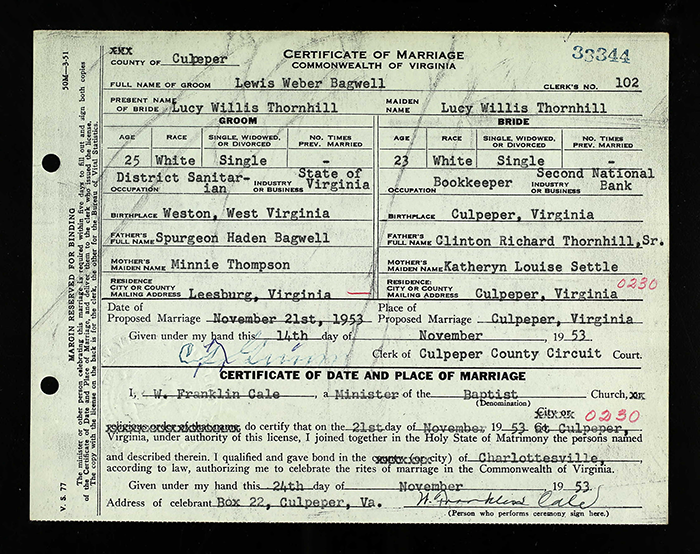 XXX
COUNTY OF Culpeper
CERTIFICATE OF MARRIAGE
COMMONWEALTH OF VIRGINIA
33344
FULL NAME OF GROOM Lewis Weber Bagwell CLERK'S NO. 102
PRESENT NAME OF BRIDE Lucy Willis Thornhill MAIDEN NAME Lucy Willis Thornhill
GROOM BRIDE
AGE RACE SINGLE, WIDOWED, OR DIVORCED NO. TIMES PREV. MARRIED AGE RACE SINGLE, WIDOWED, OR DIVORCED NO. TIMES PREV. MARRIED
25 White Single - 23 White Single -
OCCUPATION District Sanitar-ian INDUSTRY OR BUSINESS State of Virginia OCCUPATION Bookkeeper INDUSTRY OR BUSINESS Second National Bank
BIRTHPLACE Weston, West Virginia BIRTHPLACE Culpeper, Virginia
FATHER'S FULL NAME Spurgeon Haden Bagwell FATHER'S FULL NAME Clinton Richard Thornhill,Sr.
MOTHER'S MAIDEN NAME Minnie Thompson MOTHER'S MAIDEN NAME Katheryn Louise Settle
RESIDENCE CITY OR COUNTY MAILING ADDRESS Leesburg, Virginia RESIDENCE: CITY OR COUNTY MAILING ADDRESS Culpeper, Virginia 0230
Date of Proposed Marriage November 21st, 1953 Place of Proposed Marriage Culpeper, Virginia
Given under my hand this 14th day of November 1953
Clerk of Culpeper County Circuit Court.
CERTIFICATE OF DATE AND PLACE OF MARRIAGE
I, W. Franklin Cale, a Minister of the Baptist Church, or
(Denomination)
City or 0230
do certify that on the 21st day of November 19 53 at Culpeper,
Virginia, under authority of this license, I joined together in the Holy State of Matrimony the persons named
and described therein. I qualified and gave bond in the (county or city) of Charlottesville,
according to law, authorizing me to celebrate the rites of marriage in the Commonwealth of Virginia.
Given under my hand this 24th day of November 1953
Address of celebrant Box 22, Culpeper, Va. W. Franklin Cale
(Person who performs ceremony sign here.)
50M—3-51
MARGIN RESERVED FOR BINDING
The minister or other person celebrating this marriage is required within five days to fill out and sign both copies
of the Certificate of Date and Place of Marriage, and deliver them to the clerk who issued the license.
The copy with the license on the back is for the clerk, the other for the Bureau of Vital Statistics.
V. S. 77